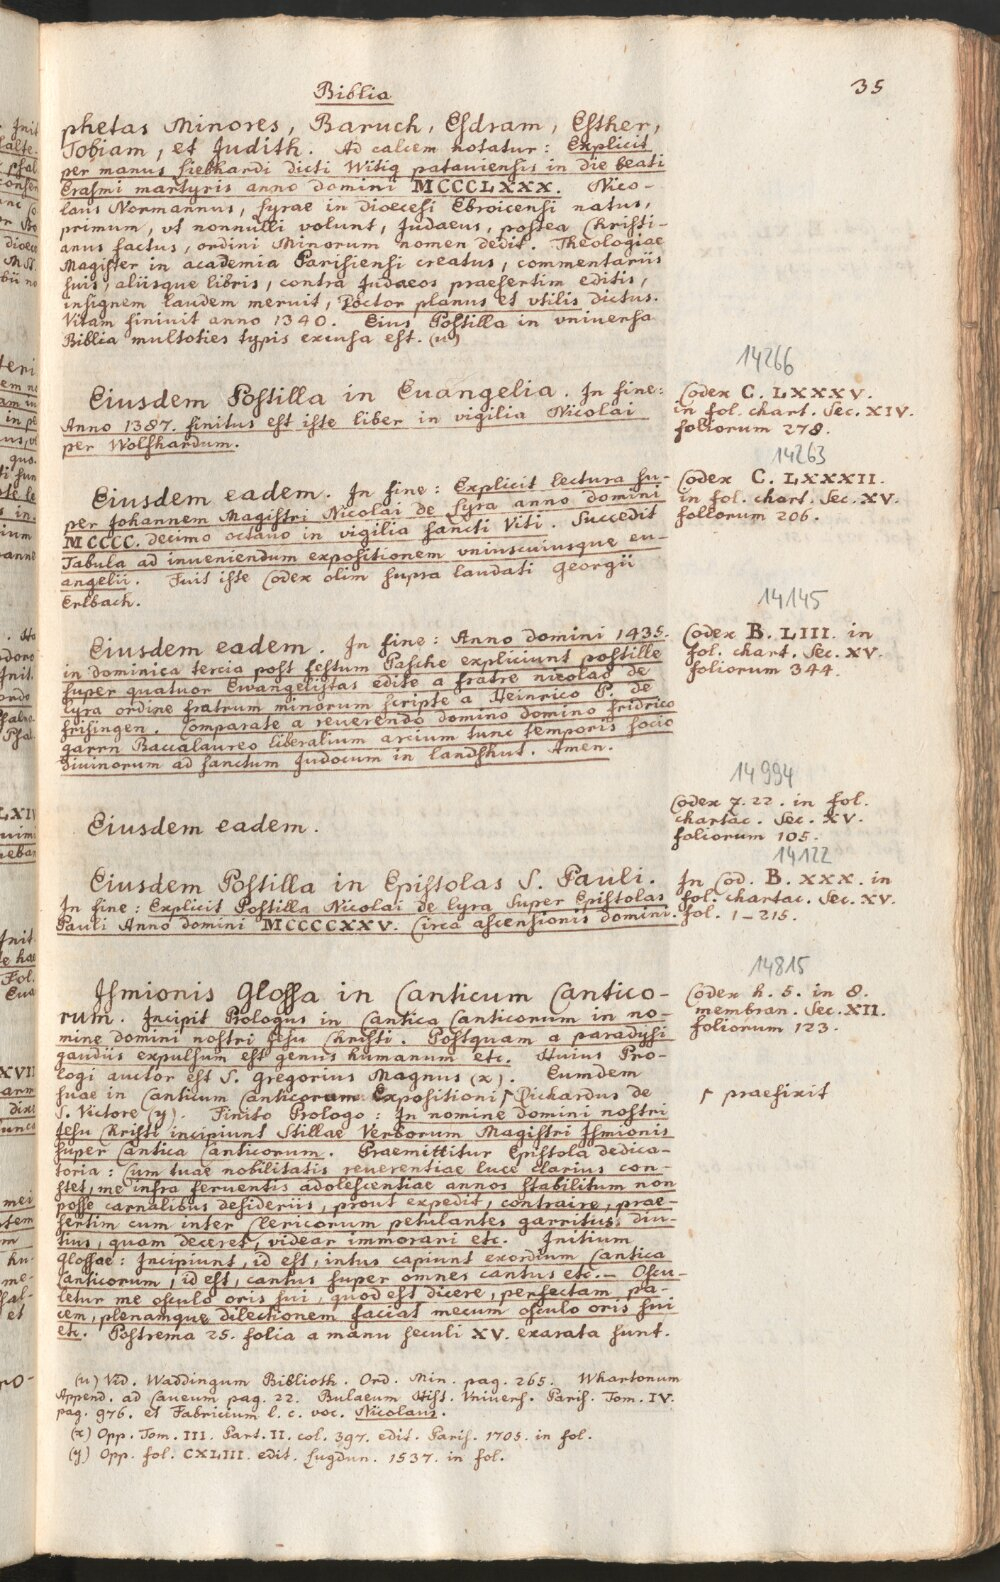 Biblia
35
phetas Minores, Baruch, Esdram, Esther,
Tobiam, et Judith. Ad calcem notatur: Explicit
per manus Liebhardi dicti Witig patauiensis in die beati
Erasmi martyris anno domini MCCCLXXX. Nico-
laus Normannus, Lyrae in dioecesi Ebroicensi natus,
primum, vt nonnulli volunt, Judaeus, postea Christi-
anus factus, ordini Minorum nomen dedit. Theologiae
Magister in academia Parisiensi creatus, commentariis
suis, aliisque libris, contra Judaeos praesertim editis,
insignem laudem meruit, Doctor planus et vtilis dictus.
Vitam finiuit anno 1340. Eius Postilla in vniuersa
Biblia multoties typis excusa est. (u)
14266
Eiusdem Postilla in Euangelia. In fine:
Anno 1387. finitus est iste liber in vigilia Nicolai
per Wolfhardum.
Codex C. LXXXV.
in fol. chart. Sec. XIV.
foliorum 278.
14263
Eiusdem eadem. In fine: Explicit lectura su-
per Johannem Magistri Nicolai de Lyra anno domini
MCCCC. decimo octauo in vigilia sancti Viti. Succedit
Tabula ad inueniendum expositionem vniuscuiusque eu-
angelii. Fuit iste Codex olim supra laudati Georgii
Erlbach.
Codex C. LXXXII.
in fol. chart. Sec. XV.
foliorum 206.
14145
Eiusdem eadem. In fine: Anno domini 1435.
in dominica tercia post festum Pasche expliciunt postille
super quatuor Ewangelistas edite a fratre nicolao de
lyra ordine fratrum minorum scripte a Heinrico P. de
frisingen. Comparate a reuerendo domino domino fridrico
garrn Baccalaureo liberalium arcium tunc temporis socio
diuinorum ad sanctum Judocum in landshut. Amen.
Codex B. LIII. in
fol. chart. Sec. XV.
foliorum 344.
14994
Eiusdem eadem.
Codex 7. 22. in fol.
chartac. Sec. XV.
foliorum 105.
14122
Eiusdem Postilla in Epistolas S. Pauli.
In fine: Explicit Postilla Nicolai de lyra super Epistolas
Pauli Anno domini MCCCCXXV. Circa ascensionis domini.
In Cod. B. XXX. in
fol. chartac. Sec. XV.
fol. 1-215.
14815
Ismionis Glossa in Canticum Cantico-
rum. Incipit Prologus in Cantica Canticorum in no-
mine domini nostri Jesu Christi. Postquam a paradysi
gaudiis expulsum est genus humanum etc. Huius Pro-
logi auctor est S. Gregorius Magnus (x). Eumdem
suae in Canticum Canticorum Expositioni ⌈ Richardus de
S. Victore (y). Finito Prologo: In nomine domini nostri
Jesu Christi incipiunt Stillae Verborum Magistri Ismionis
super Cantica Canticorum. Praemittitur Epistola dedica-
toria: Cum tuae nobilitatis reuerentiae luce clarius con-
stet, me infra feruentis adolescentiae annos stabilitum non
posse carnalibus desideriis, prout expedit, contraire, prae-
sertim cum inter Clericorum petulantes garritus, diu-
tius, quam deceret, videar immorari etc. Initium
Glossae: Incipiunt, id est, intus capiunt exordium Cantica
Canticorum, id est, cantus super omnes cantus etc. — Oscu-
letur me osculo oris sui, quod est dicere, perfectam, pa-
cem, plenamque dilectionem faciat mecum osculo oris sui
etc. Postrema 25. folia a manu seculi XV. exarata sunt.
Codex h. 5. in 8.
membran. Sec. XII.
foliorum 123.
⌈ praefixit
(u) Vid. Waddingum Biblioth. Ord. Min. pag. 265. Whartonum
Append. ad Caueum pag. 22. Bulaeum Hist. Vniuers. Paris. Tom. IV.
pag. 976. et Fabricium l. c. voc. Nicolaus.
(x) Opp. Tom. III. Part. II. col. 397. edit. Paris. 1705. in fol.
(y) Opp. fol. CXLIII. edit. Lugdun. 1537. in fol.